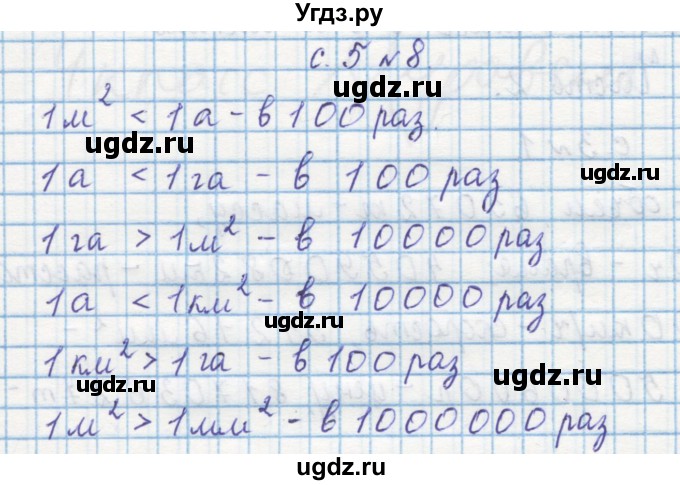 Угдз.ру
с. 5 №8
ugdz.ru
1 м² < 1 а - в 100 раз.
ugdz.ru
1 а < 1 га - в 100 раз
ugdz.ru
ugdz.ru
1 га > 1 м² - в 10000 раз
ugdz.ru
1 а < 1 км² - в 10000 раз
ugdz.ru
1 км² > 1 га - в 100 раз
ugdz.ru
ugdz.ru
1 м² > 1 мм² - в 1000000 раз
ugdz.ru